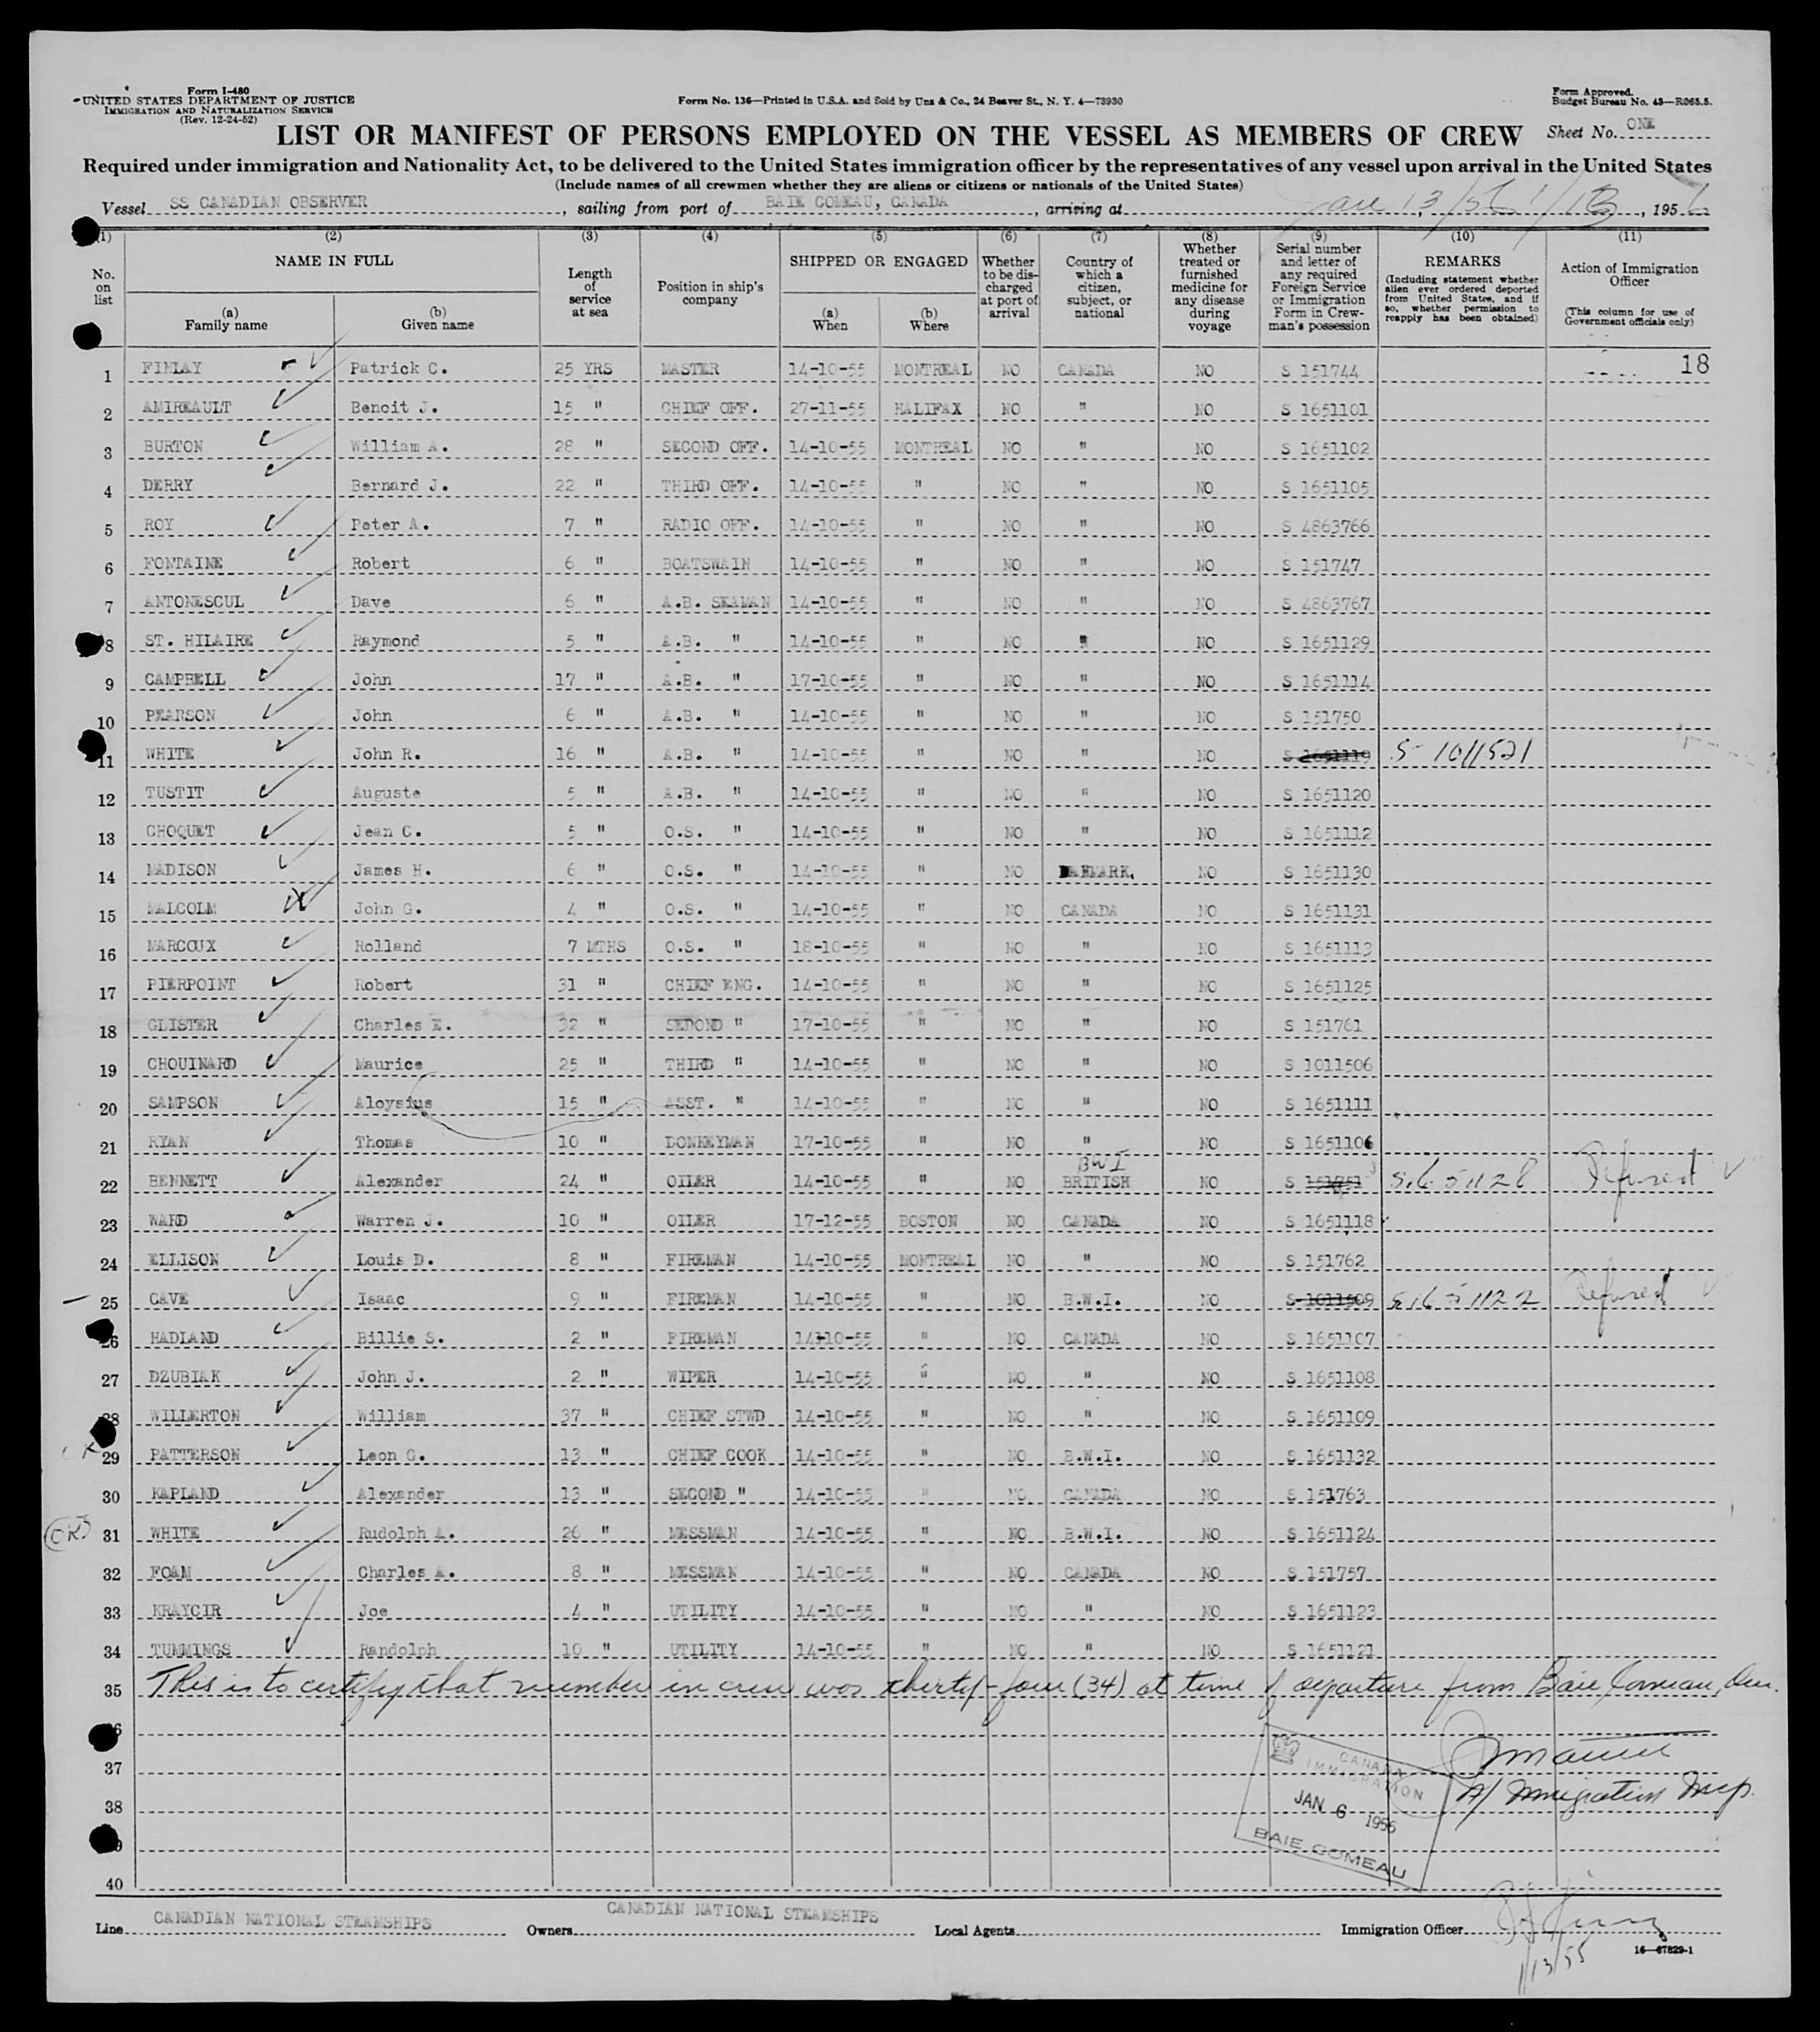 Form I-480
UNITED STATES DEPARTMENT OF JUSTICE
IMMIGRATION AND NATURALIZATION SERVICE
(Rev. 12-24-52)
Form No. 136—Printed in U.S.A. and Sold by Unz & Co., 24 Beaver St., N. Y. 4—73930
Form Approved.
Budget Bureau No. 43—R065.5.
LIST OR MANIFEST OF PERSONS EMPLOYED ON THE VESSEL AS MEMBERS OF CREW
Sheet No. ONE
Required under immigration and Nationality Act, to be delivered to the United States immigration officer by the representatives of any vessel upon arrival in the United States
(Include names of all crewmen whether they are aliens or citizens or nationals of the United States)
Vessel SS CANADIAN OBSERVER, sailing from port of BAIE COMEAU, CANADA, arriving at Jan 13/56 1/13, 1956
(1) No. on list
(2) NAME IN FULL (a) Family name (b) Given name
(3) Length of service at sea
(4) Position in ship's company
(5) SHIPPED OR ENGAGED (a) When (b) Where
(6) Whether to be discharged at port of arrival
(7) Country of which a citizen, subject, or national
(8) Whether treated or furnished medicine for any disease during voyage
(9) Serial number and letter of any required Foreign Service or Immigration Form in Crewman's possession
(10) REMARKS (Including statement whether alien ever ordered deported from United States, and if so, whether permission to reapply has been obtained)
(11) Action of Immigration Officer (This column for use of Government officials only)
1 FINLAY Patrick C. 25 YRS MASTER 14-10-55 MONTREAL NO CANADA NO S 151744 18
2 AMIREAULT Benoit J. 15 " CHIEF OFF. 27-11-55 HALIFAX NO " NO S 1651101
3 BURTON William A. 28 " SECOND OFF. 14-10-55 MONTREAL NO " NO S 1651102
4 DERRY Bernard J. 22 " THIRD OFF. 14-10-55 " NO " NO S 1651105
5 ROY Peter A. 7 " RADIO OFF. 14-10-55 " NO " NO S 4863766
6 FONTAINE Robert 6 " BOATSWAIN 14-10-55 " NO " NO S 151747
7 ANTONESCUL Dave 6 " A.B. SEAMAN 14-10-55 " NO " NO S 4863767
8 ST. HILAIRE Raymond 5 " A.B. " 14-10-55 " NO " NO S 1651129
9 CAMPBELL John 17 " A.B. " 17-10-55 " NO " NO S 1651114
10 PEARSON John 6 " A.B. " 14-10-55 " NO " NO S 151750
11 WHITE John R. 16 " A.B. " 14-10-55 " NO " NO S 1651119 S- 1011521
12 TUSTIT Auguste 5 " A.B. " 14-10-55 " NO " NO S 1651120
13 CHOQUET Jean C. 5 " O.S. " 14-10-55 " NO " NO S 1651112
14 MADISON James H. 6 " O.S. " 14-10-55 " NO NO S 1651130
15 MALCOLM John G. 4 " O.S. " 14-10-55 " NO CANADA NO S 1651131
16 MARCOUX Rolland 7 MTHS O.S. " 18-10-55 " NO " NO S 1651113
17 PIERPOINT Robert 31 " CHIEF ENG. 14-10-55 " NO " NO S 1651125
18 GLISTER Charles E. 32 " SEDOND " 17-10-55 " NO " NO S 151761
19 CHOUINARD Maurice 25 " THIRD " 14-10-55 " NO " NO S 1011506
20 SAMPSON Aloysius 15 " ASST. " 14-10-55 " NO " NO S 1651111
21 RYAN Thomas 10 " DONKEYMAN 17-10-55 " NO " NO S 1651106
BWI
22 BENNETT Alexander 24 " OILER 14-10-55 " NO BRITISH NO S 151751 S1651128 Refused
23 WARD Warren J. 10 " OILER 17-12-55 BOSTON NO CANADA NO S 1651118
24 ELLISON Louis D. 8 " FIREMAN 14-10-55 MONTREAL NO " NO S 151762
25 CAVE Isaac 9 " FIREMAN 14-10-55 " NO B.W.I. NO S 1011509 S1651122 Refused
26 HADLAND Billie S. 2 " FIREMAN 14-10-55 " NO CANADA NO S 1651107
27 DZUBIAK John J. 2 " WIPER 14-10-55 " NO " NO S 1651108
28 WILLERTON William 37 " CHIEF STWD 14-10-55 " NO " NO S 1651109
29 PATTERSON Leon G. 13 " CHIEF COOK 14-10-55 " NO B.W.I. NO S 1651132
30 KAPLAND Alexander 13 " SECOND " 14-10-55 " NO CANADA NO S 151763
OK 31 WHITE Rudolph A. 26 " MESSMAN 14-10-55 " NO B.W.I. NO S 1651124
32 FOAM Charles A. 8 " MESSMAN 14-10-55 " NO CANADA NO S 151757
33 KRAYCIR Joe 4 " UTILITY 14-10-55 " NO " NO S 1651123
34 TUMMINGS Randolph 10 " UTILITY 14-10-55 " NO " NO S 1651121
35 This is to certify that number in crew was thirty-four (34) at time of departure from Baie Comeau, Que.
36
37
38
39
40
A/ Immigration Insp.
CANADA
IMMIGRATION
JAN 6 1956
BAIE COMEAU
Line CANADIAN NATIONAL STEAMSHIPS Owners CANADIAN NATIONAL STEAMSHIPS Local Agents Immigration Officer
1/13/55
16—67829-1